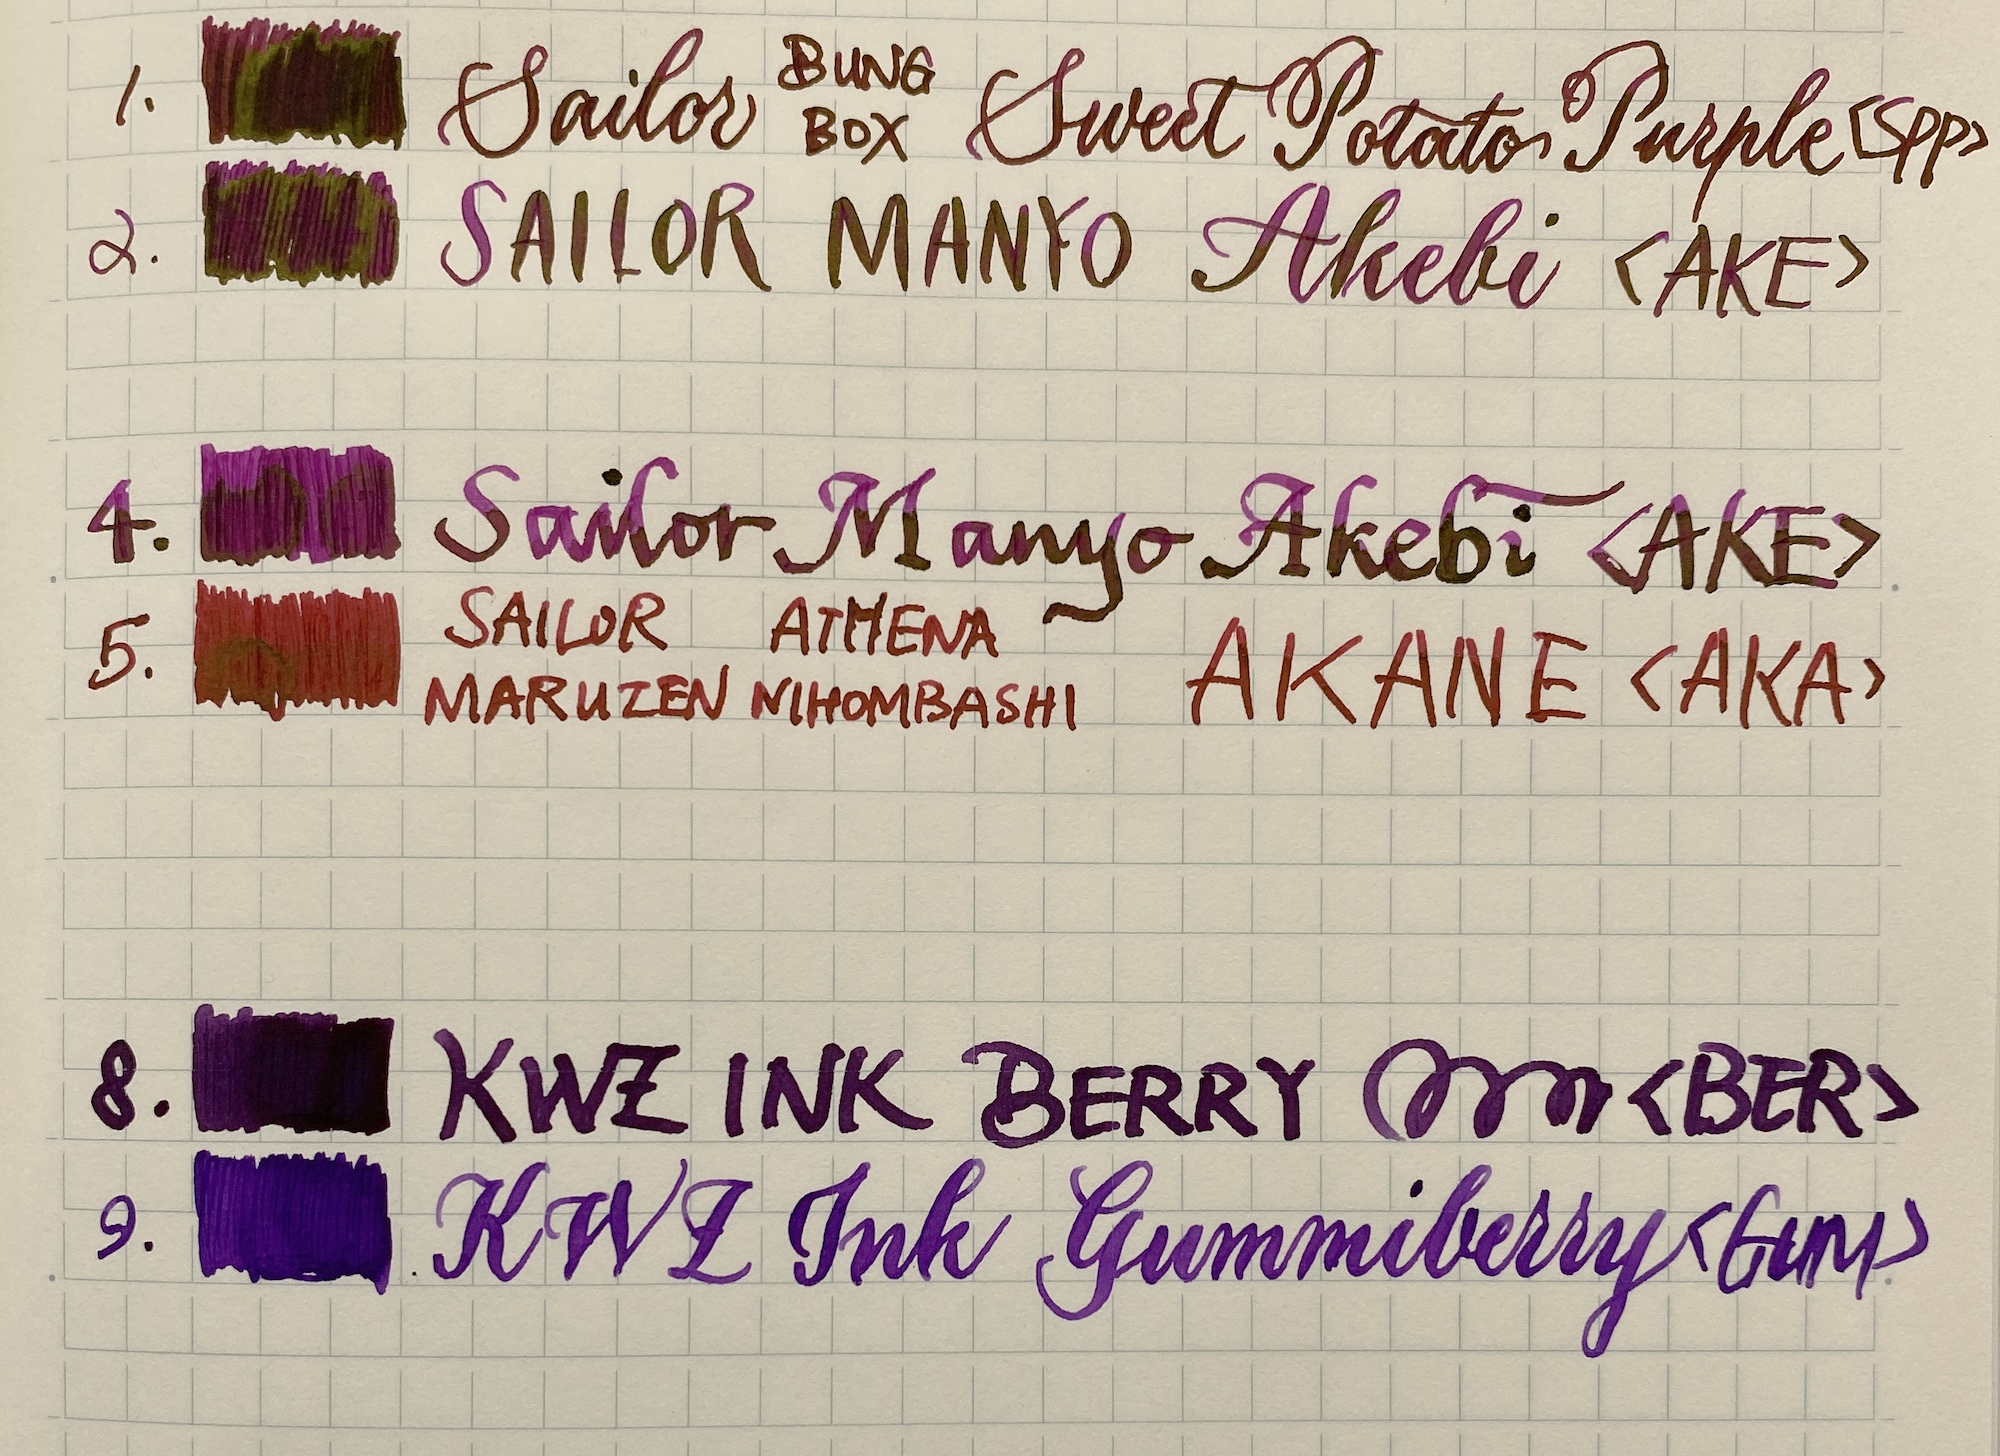 1. Sailor BUNG BOX Sweet Potato Purple <SPP>
2. SAILOR MANYO Akebi <AKE>
4. Sailor Manyo Akebi <AKE>
5. SAILOR ATHENA AKANE <AKA>
MARUZEN NIHOMBASHI
8. KWZ INK BERRY <BER>
9. KWZ Ink Gummiberry <GUM>